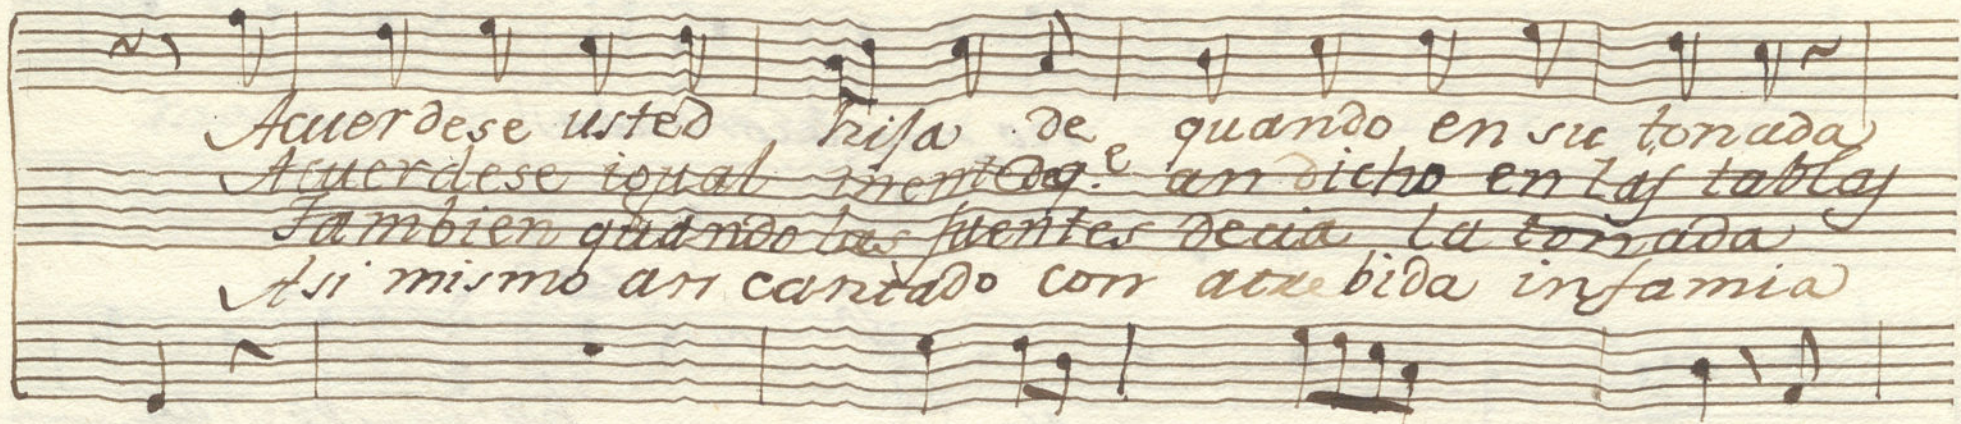 Acuerdese usted hija de quando en su tonada
Acuerdese igual mente q.e an dicho en las tablas
Tambien quando las fuentes decia la tonada
Asi mismo an cantado con atrebida infamia